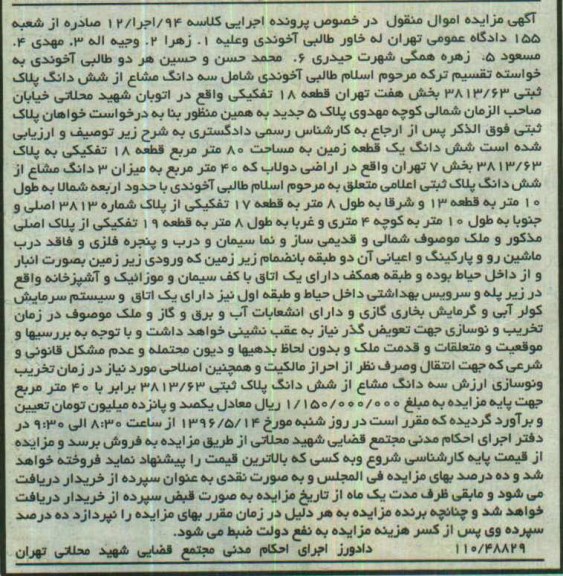 آگهی مزایده اموال منقول در خصوص پرونده اجرایی کلاسه ۹۴/اجرا/۱۲ صادره از شعبه
۱۵۵ دادگاه عمومی تهران له خاور طالبی آخوندی وعلیه ۱. زهرا ۲. وجیه اله ۳. مهدی ۴.
مسعود ۵. زهره همگی شهرت حیدری ۶. محمد حسن و حسین هر دو طالبی آخوندی به
خواسته تقسیم ترکه مرحوم اسلام طالبی آخوندی شامل سه دانگ مشاع از شش دانگ پلاک
ثبتی ۳۸۱۳/۶۳ بخش هفت تهران قطعه ۱۸ تفکیکی واقع در اتوبان شهید محلاتی خیابان
صاحب الزمان شمالی کوچه مهدوی پلاک ۵ جدید به همین منظور بنا به درخواست خواهان پلاک
ثبتی فوق الذکر پس از ارجاع به کارشناس رسمی دادگستری به شرح زیر توصیف و ارزیابی
شده است شش دانگ یک قطعه زمین به مساحت ۸۰ متر مربع قطعه ۱۸ تفکیکی به پلاک
۳۸۱۳/۶۳ بخش ۷ تهران واقع در اراضی دولاب که ۴۰ متر مربع به میزان ۳ دانگ مشاع از
شش دانگ پلاک ثبتی اعلامی متعلق به مرحوم اسلام طالبی آخوندی با حدود اربعه شمالا به طول
۱۰ متر به قطعه ۱۳ و شرقا به طول ۸ متر به قطعه ۱۷ تفکیکی از پلاک شماره ۳۸۱۳ اصلی و
جنوبا به طول ۱۰ متر به کوچه ۴ متری و غربا به طول ۸ متر به قطعه ۱۹ تفکیکی از پلاک اصلی
مذکور و ملک موصوف شمالی و قدیمی ساز و نما سیمان و درب و پنجره فلزی و فاقد درب
ماشین رو و پارکینگ و اعیانی آن دو طبقه بانضمام زیر زمین که ورودی زیر زمین بصورت انبار
و از داخل حیاط بوده و طبقه همکف دارای یک اتاق با کف سیمان و موزائیک و آشپزخانه واقع
در زیر پله و سرویس بهداشتی داخل حیاط و طبقه اول نیز دارای یک اتاق و سیستم سرمایش
کولر آبی و گرمایش بخاری گازی و دارای انشعابات آب و برق و گاز و ملک موصوف در زمان
تخریب و نوسازی جهت تعویض گذر نیاز به عقب نشینی خواهد داشت و با توجه به بررسیها و
موقعیت و متعلقات و قدمت ملک و بدون لحاظ بدهیها و دیون محتمله و عدم مشکل قانونی و
شرعی که جهت انتقال وصرف نظر از احراز مالکیت و همچنین اصلاحی مورد نیاز در زمان تخریب
ونوسازی ارزش سه دانگ مشاع از شش دانگ پلاک ثبتی ۳۸۱۳/۶۳ برابر با ۴۰ متر مربع
جهت پایه مزایده به مبلغ ۱/۱۵۰/۰۰۰/۰۰۰ ریال معادل یکصد و پانزده میلیون تومان تعیین
و برآورد گردیده که مقرر است در روز شنبه مورخ ۱۳۹۶/۵/۱۴ از ساعت ۸:۳۰ الی ۹:۳۰ در
دفتر اجرای احکام مدنی مجتمع قضایی شهید محلاتی از طریق مزایده به فروش برسد و مزایده
از قیمت پایه کارشناسی شروع وبه کسی که بالاترین قیمت را پیشنهاد نماید فروخته خواهد
شد و ده درصد بهای مزایده فی المجلس و به صورت نقدی به عنوان سپرده از خریدار دریافت
می شود و مابقی ظرف مدت یک ماه از تاریخ مزایده به صورت قبض سپرده از خریدار دریافت
خواهد شد و چنانچه برنده مزایده به هر دلیل در زمان مقرر بهای مزایده را نپردازد ده درصد
سپرده وی پس از کسر هزینه مزایده به نفع دولت ضبط می شود.
۱۱۰/۴۸۸۲۹ دادورز اجرای احکام مدنی مجتمع قضایی شهید محلاتی تهران